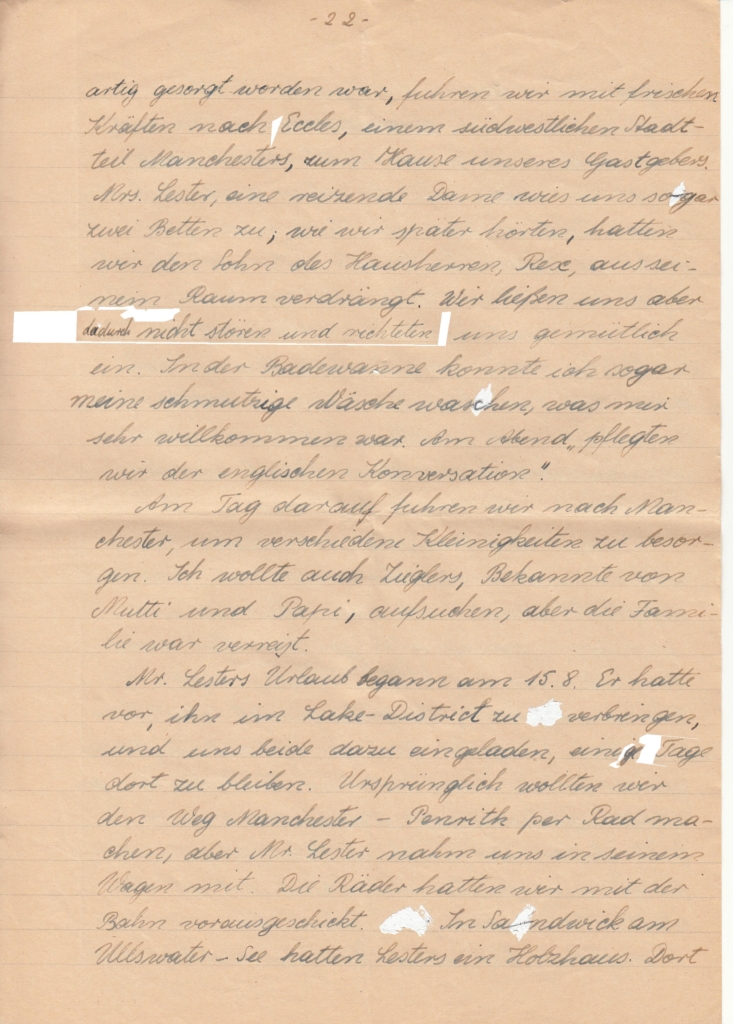 - 22 -
artig gesorgt worden war, fuhren wir mit frischen
Kräften nach Eccles, einem südwestlichen Stadt-
teil Manchesters, zum Hause unseres Gastgebers.
Mrs. Lester, eine reizende Dame wies uns sogar
zwei Betten zu; wie wir später hörten, hatten
wir den Sohn des Hausherren, Rex, aus sei-
nem Raum verdrängt. Wir ließen uns aber
dadurch nicht stören und richteten uns gemütlich
ein. In der Badewanne konnte ich sogar
meine schmutzige Wäsche waschen, was mir
sehr willkommen war. Am Abend „pflegten
wir der englischen Konversation".
Am Tag darauf fuhren wir nach Man-
chester, um verschiedene Kleinigkeiten zu besor-
gen. Ich wollte auch Zieglers, Bekannte von
Mutti und Papi, aufsuchen, aber die Fami-
lie war verreist.
Mr. Lesters Urlaub begann am 15.8. Er hatte
vor, ihn im Lake-District zu verbringen,
und uns beide dazu eingeladen, einige Tage
dort zu bleiben. Ursprünglich wollten wir
den Weg Manchester - Penrith per Rad ma-
chen, aber Mr. Lester nahm uns in seinem
Wagen mit. Die Räder hatten wir mit der
Bahn vorausgeschickt. In Sandwick am
Ullswater-See hatten Lesters ein Holzhaus. Dort